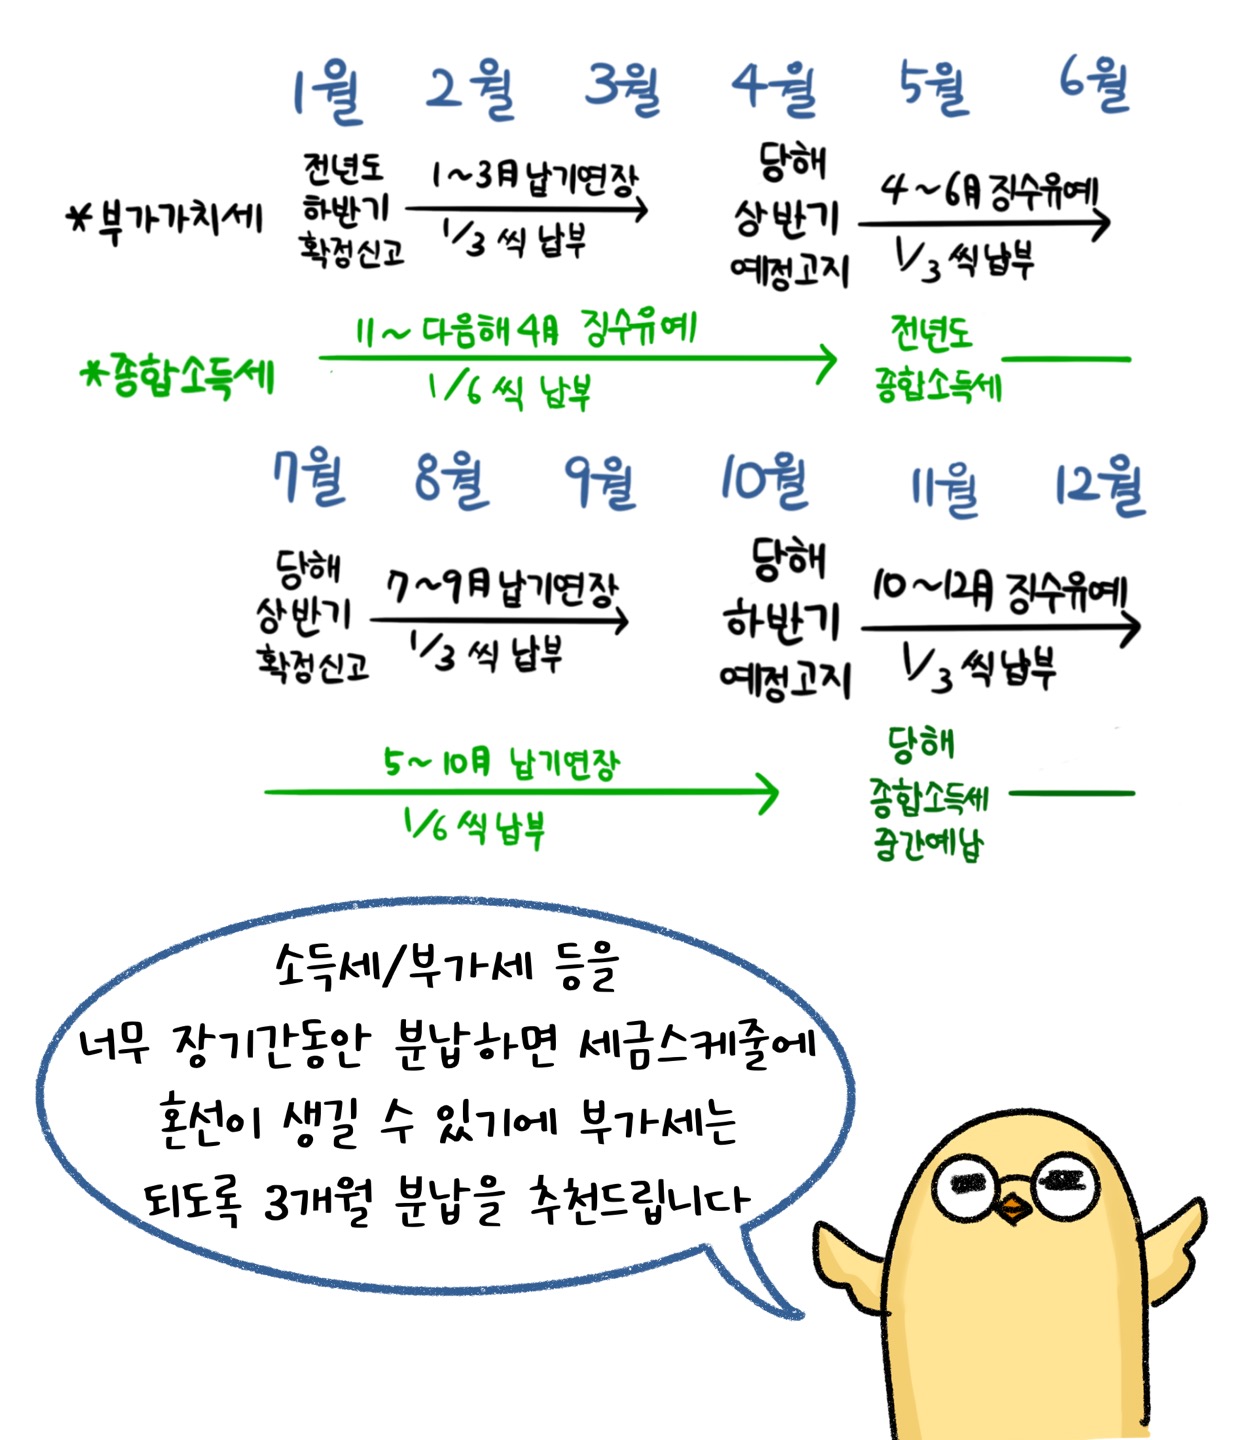 1월 2월 3월 4월 5월 6월
*부가가치세
전년도
하반기
확정신고
1~3월 납기연장
1/3 씩 납부
당해
상반기
예정고지
4~6월 징수유예
1/3 씩 납부
*종합소득세
11~ 다음해 4월 징수유예
1/6 씩 납부
전년도
종합소득세
7월 8월 9월 10월 11월 12월
당해
상반기
확정신고
7~9월 납기연장
1/3 씩 납부
당해
하반기
예정고지
10~12월 징수유예
1/3 씩 납부
5~10월 납기연장
1/6 씩 납부
당해
종합소득세
중간예납
소득세/부가세 등을
너무 장기간동안 분납하면 세금스케줄에
혼선이 생길 수 있기에 부가세는
되도록 3개월 분납을 추천드립니다